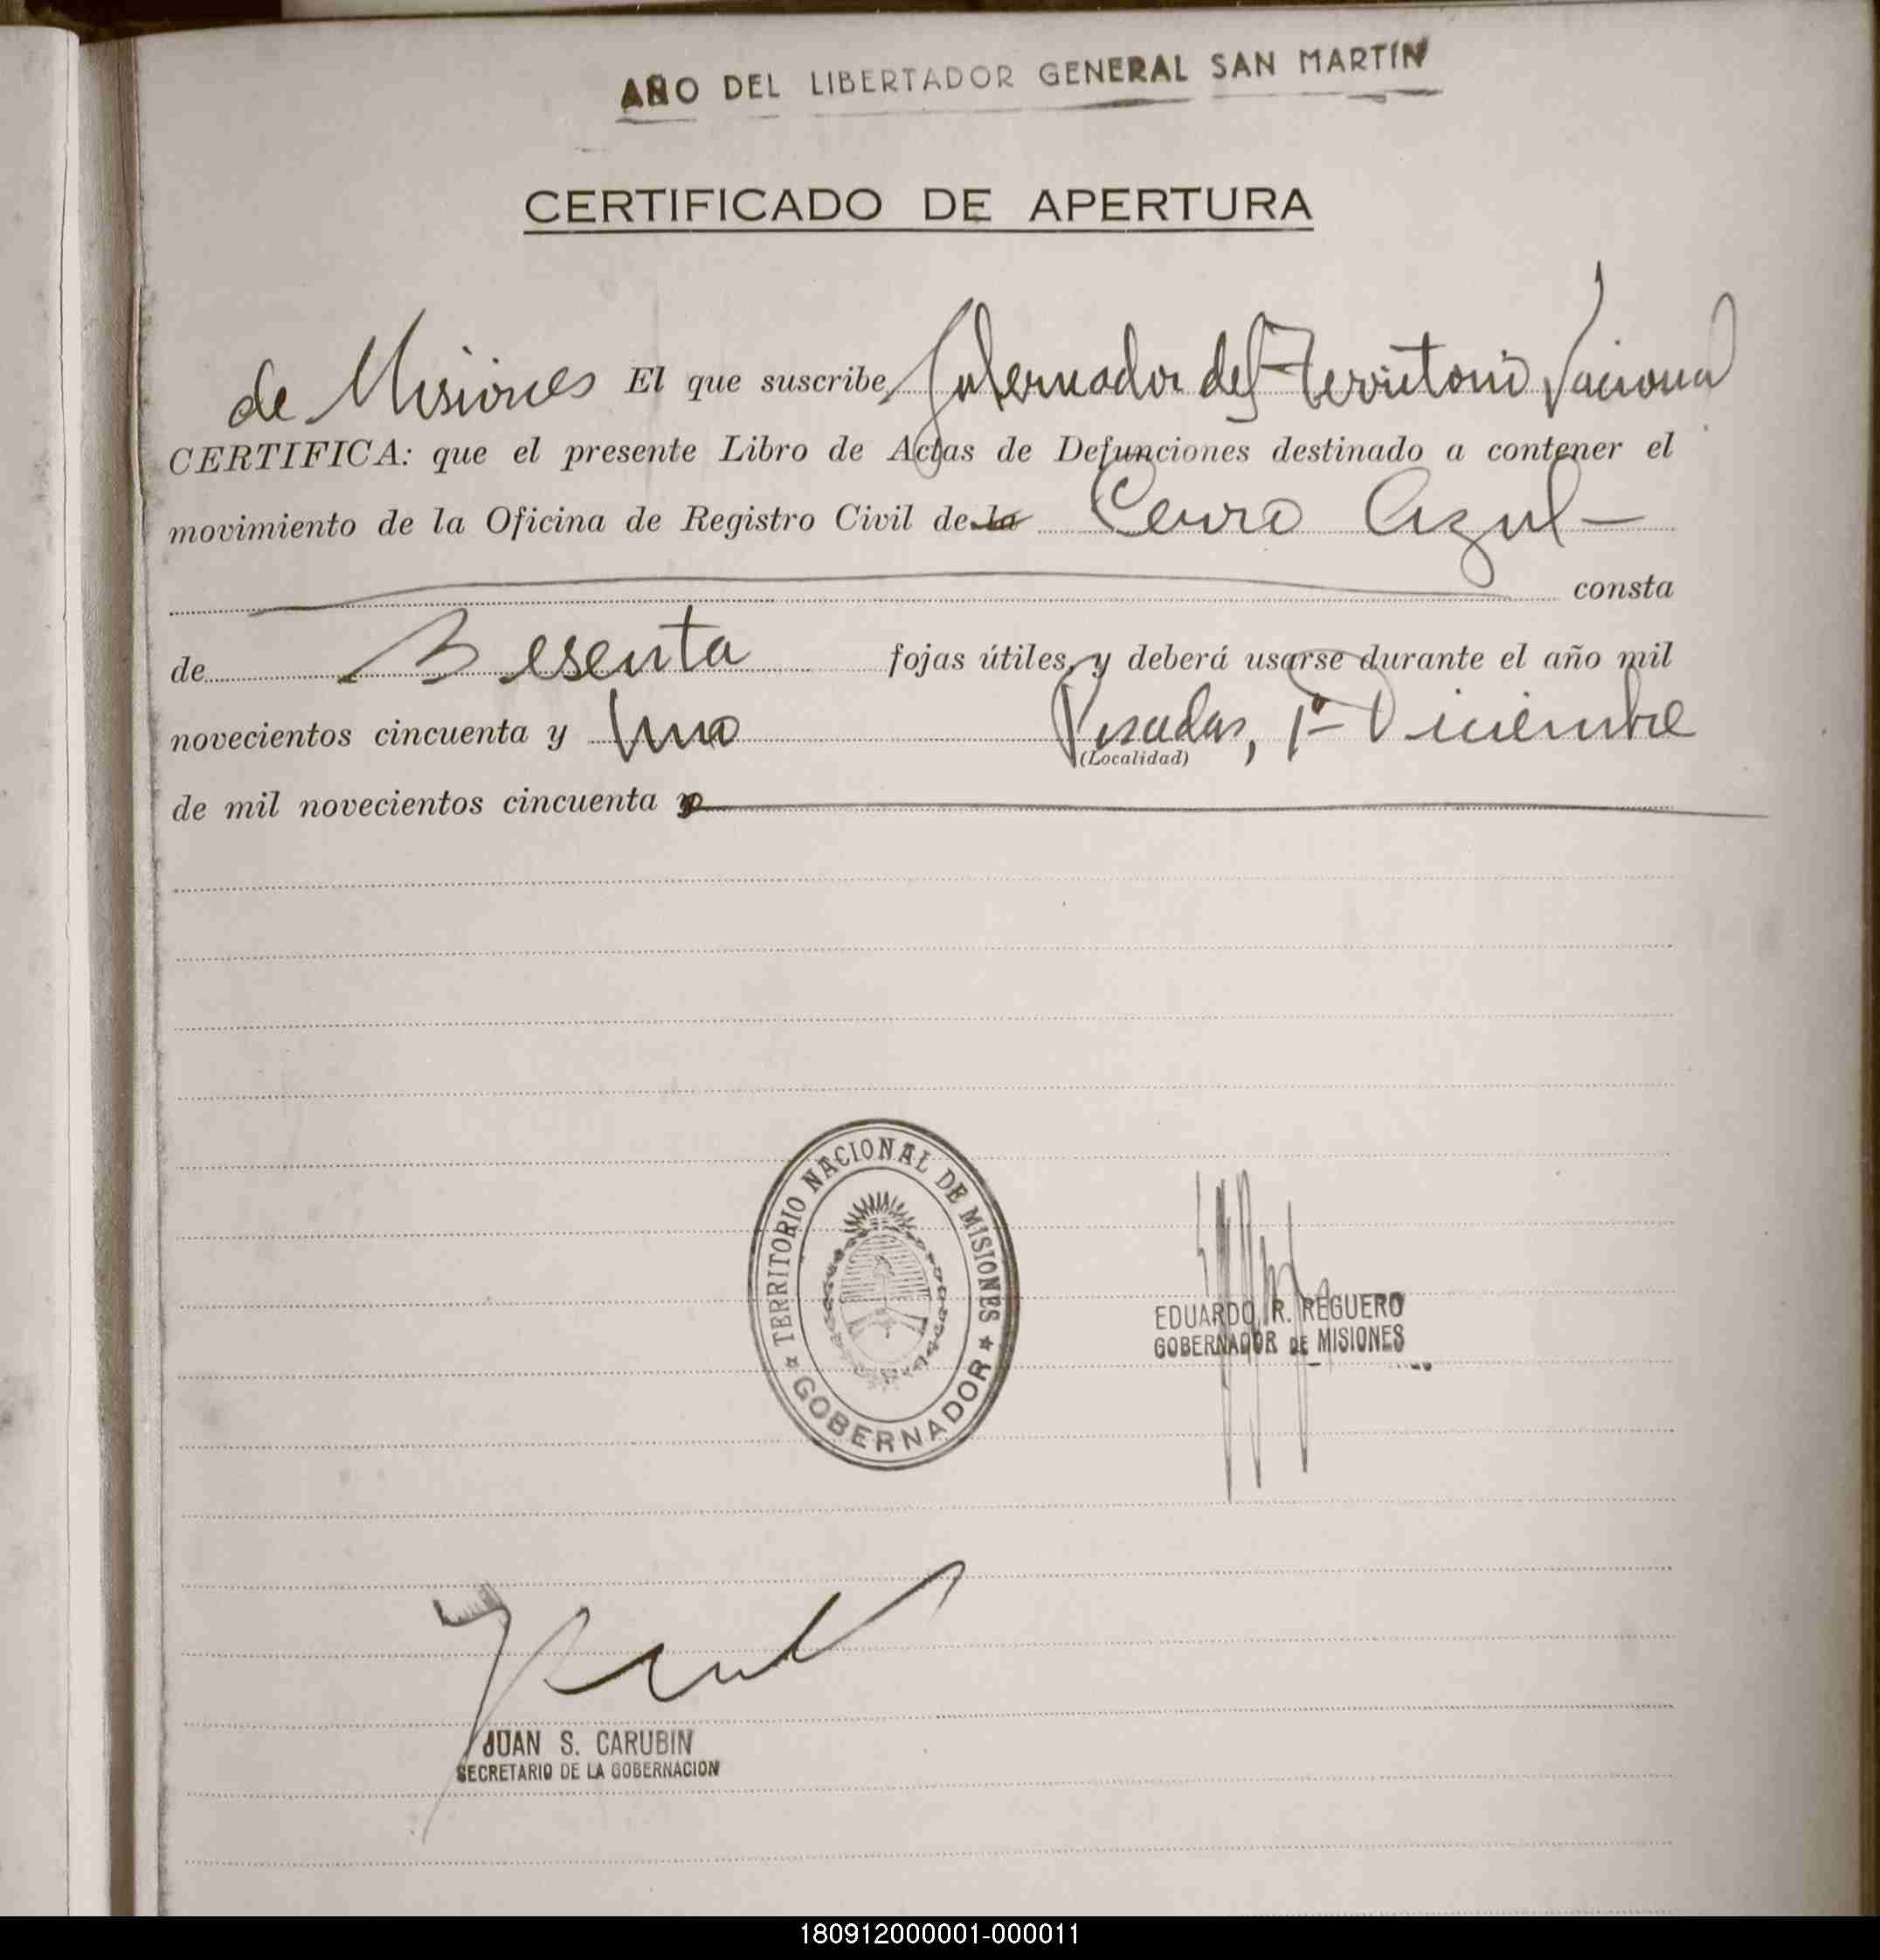 AÑO DEL LIBERTADOR GENERAL SAN MARTÍN
CERTIFICADO DE APERTURA
de Misiones El que suscribe, Gobernador del Territorio Nacional
CERTIFICA: que el presente Libro de Actas de Defunciones destinado a contener el
movimiento de la Oficina de Registro Civil de la Cerro Azul —
consta
de Sesenta fojas útiles, y deberá usarse durante el año mil
novecientos cincuenta y Uno Posadas, 1º Diciembre
(Localidad)
de mil novecientos cincuenta y
TERRITORIO NACIONAL DE MISIONES
GOBERNADOR
EDUARDO R. REGUERO
GOBERNADOR DE MISIONES
JUAN S. CARUBIN
SECRETARIO DE LA GOBERNACION
180912000001-000011